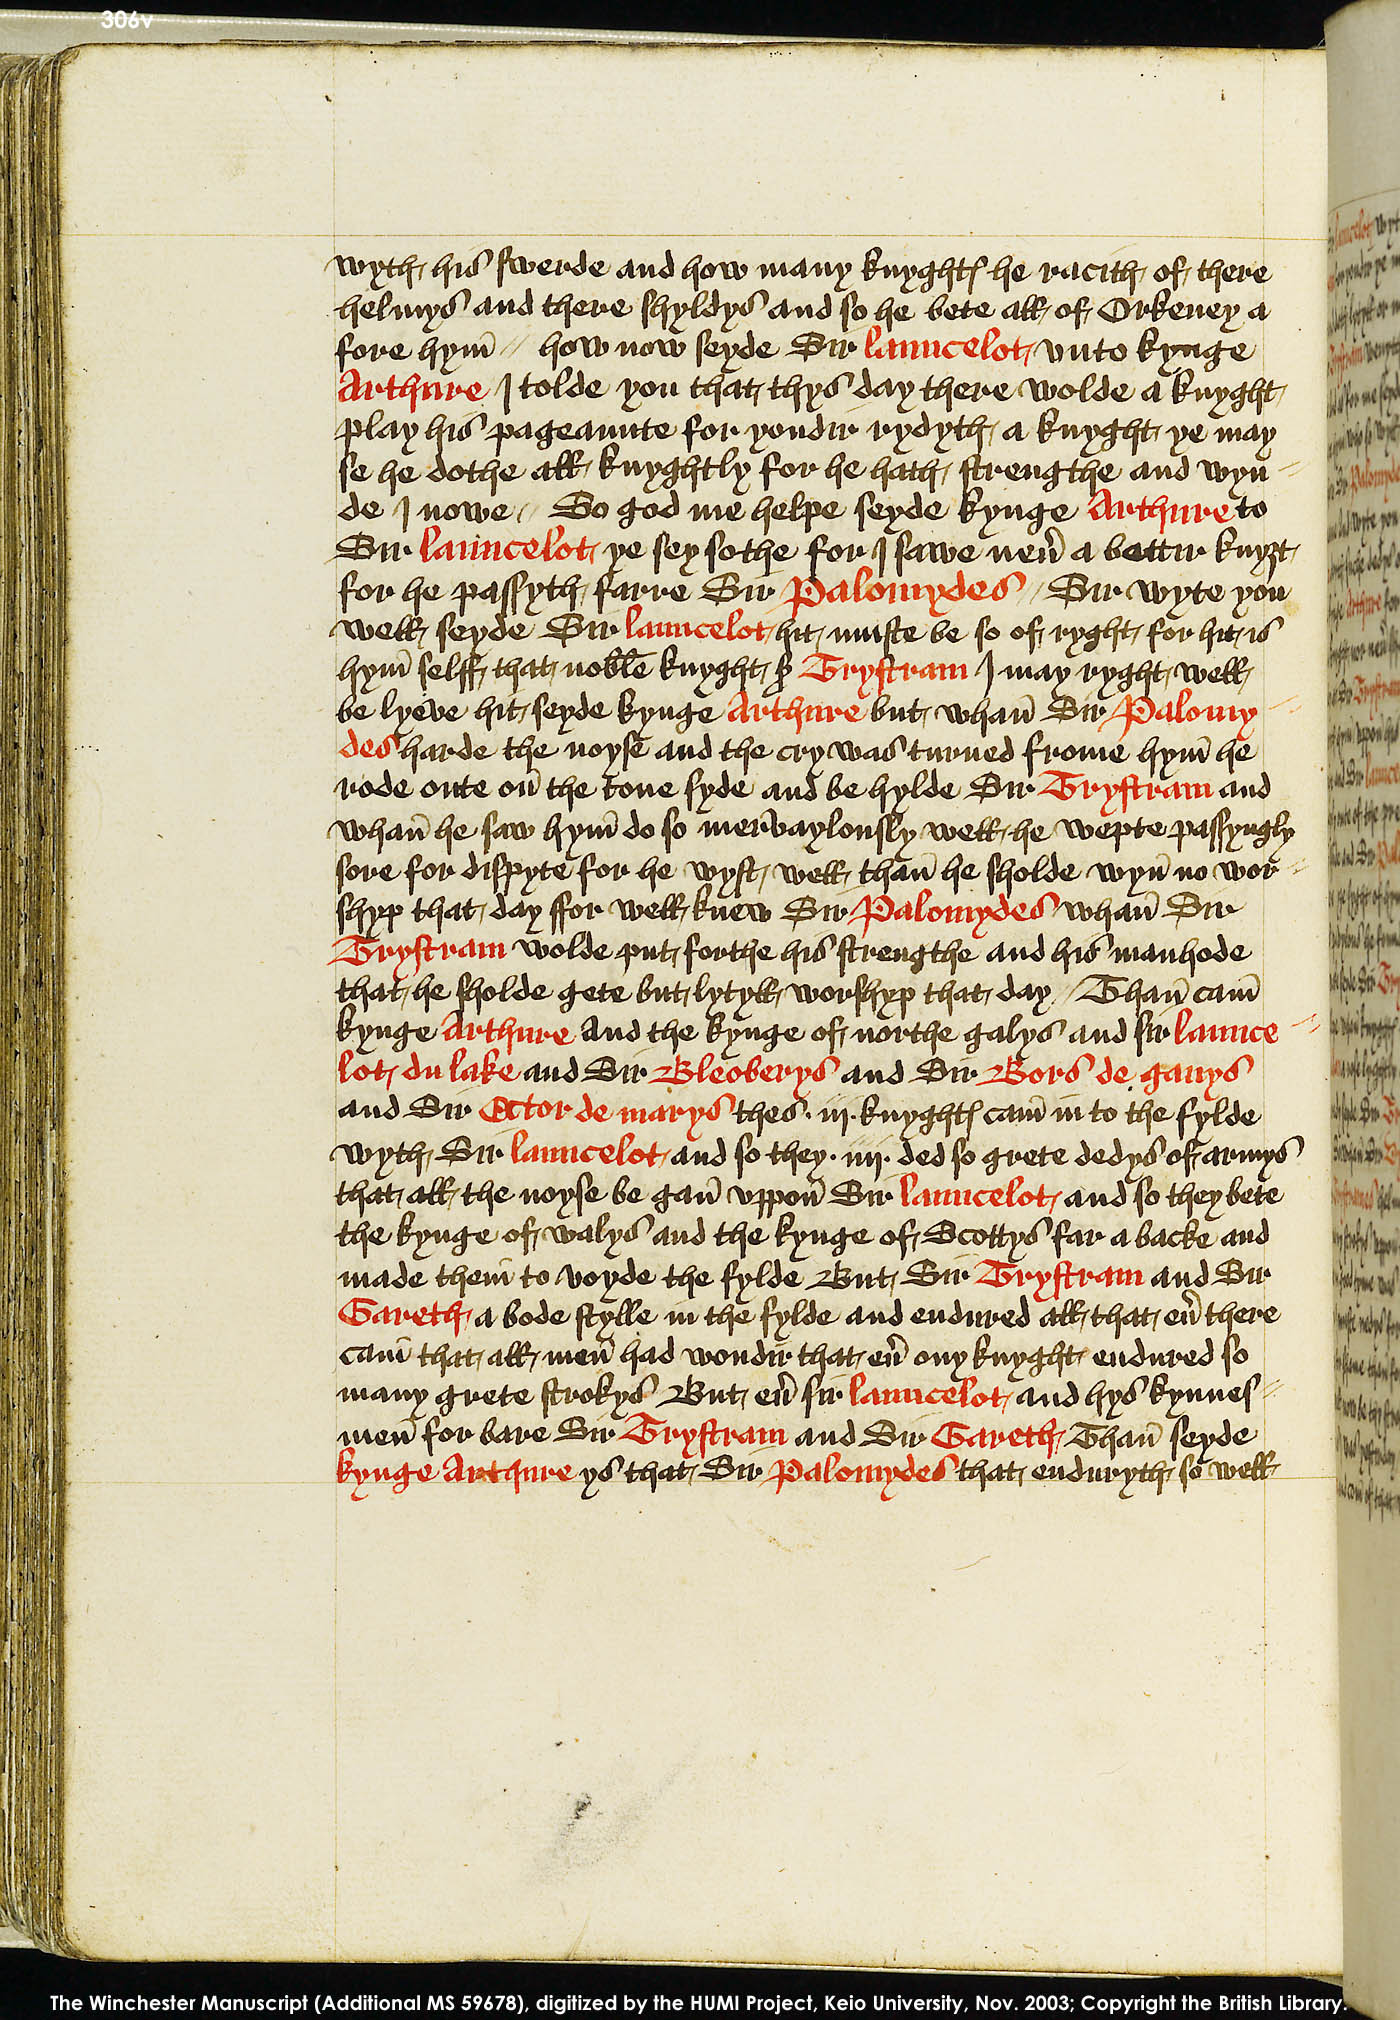 306v
wyth his swerde and how many knyghtes he racith of there
helmys and there shyldys and so he bete all of Orkeney a
fore hym̄ // how now seyde Sir launcelot vnto kynge
Arthure I tolde you that thys day there wolde a knyght
play his pageaunte for yondir rydyth a knyght ye may
se he dothe all knyghtly for he hath strengthe and wyn
de I nowe // So god me helpe seyde kynge Arthure to
Sir launcelot ye sey sothe for I sawe neu̾ a bettir knyȝt
for he passyth farre Sir Palomydes // Sir wyte you
well seyde Sir launcelot hit muste be so of ryght for hit is
hym̄ selff that noble knyght ẜ Trystram I may ryght well
be lyeve hit seyde kynge Arthure but whan̄ Sir Palomy
des harde the noyse and the cry was turned frome hym̄ he
rode oute on̄ the tone syde and be hylde Sir Trystram and
whan̄ he saw hym̄ do so mervaylously well he wepte passyngly
sore for dispyte for he wyst well than̄ he sholde wyn̄ no wor
shyp that day ffor well knew Sir Palomydes whan̄ Sir
Trystram wolde put forthe his strengthe and his manhode
that he sholde gete but lytyll worshyp that day / Than̄ cam̄
kynge Arthure And the kynge of northe galys and sir launce
lot du lake and Sir Bleoberys and Sir Bors de ganys
and Sir Ector de marys thes .iij. knyghtes cam̄ in to the fylde
wyth Sir launcelot and so they .iiij. ded so grete dedys of armys
that all the noyse be gan̄ vppon̄ Sir launcelot and so they bete
the kynge of walys and the kynge of Scottys far a backe and
made them̄ to voyde the fylde But Sir Trystram and Sir
Gareth a bode stylle in the fylde and endured all that eu̾ there
cam̄ that all men̄ had wondir that eu̾ ony knyght endured so
many grete strokys But eu̾ sir launcelot and hys kynnes
men̄ for bare Sir Trystram and Sir Gareth Than̄ seyde
kynge Arthure ys that Sir Palomydes that enduryth so well
The Winchester Manuscript (Additional MS 59678), digitized by the HUMI Project, Keio University, Nov. 2003; Copyright the British Library.